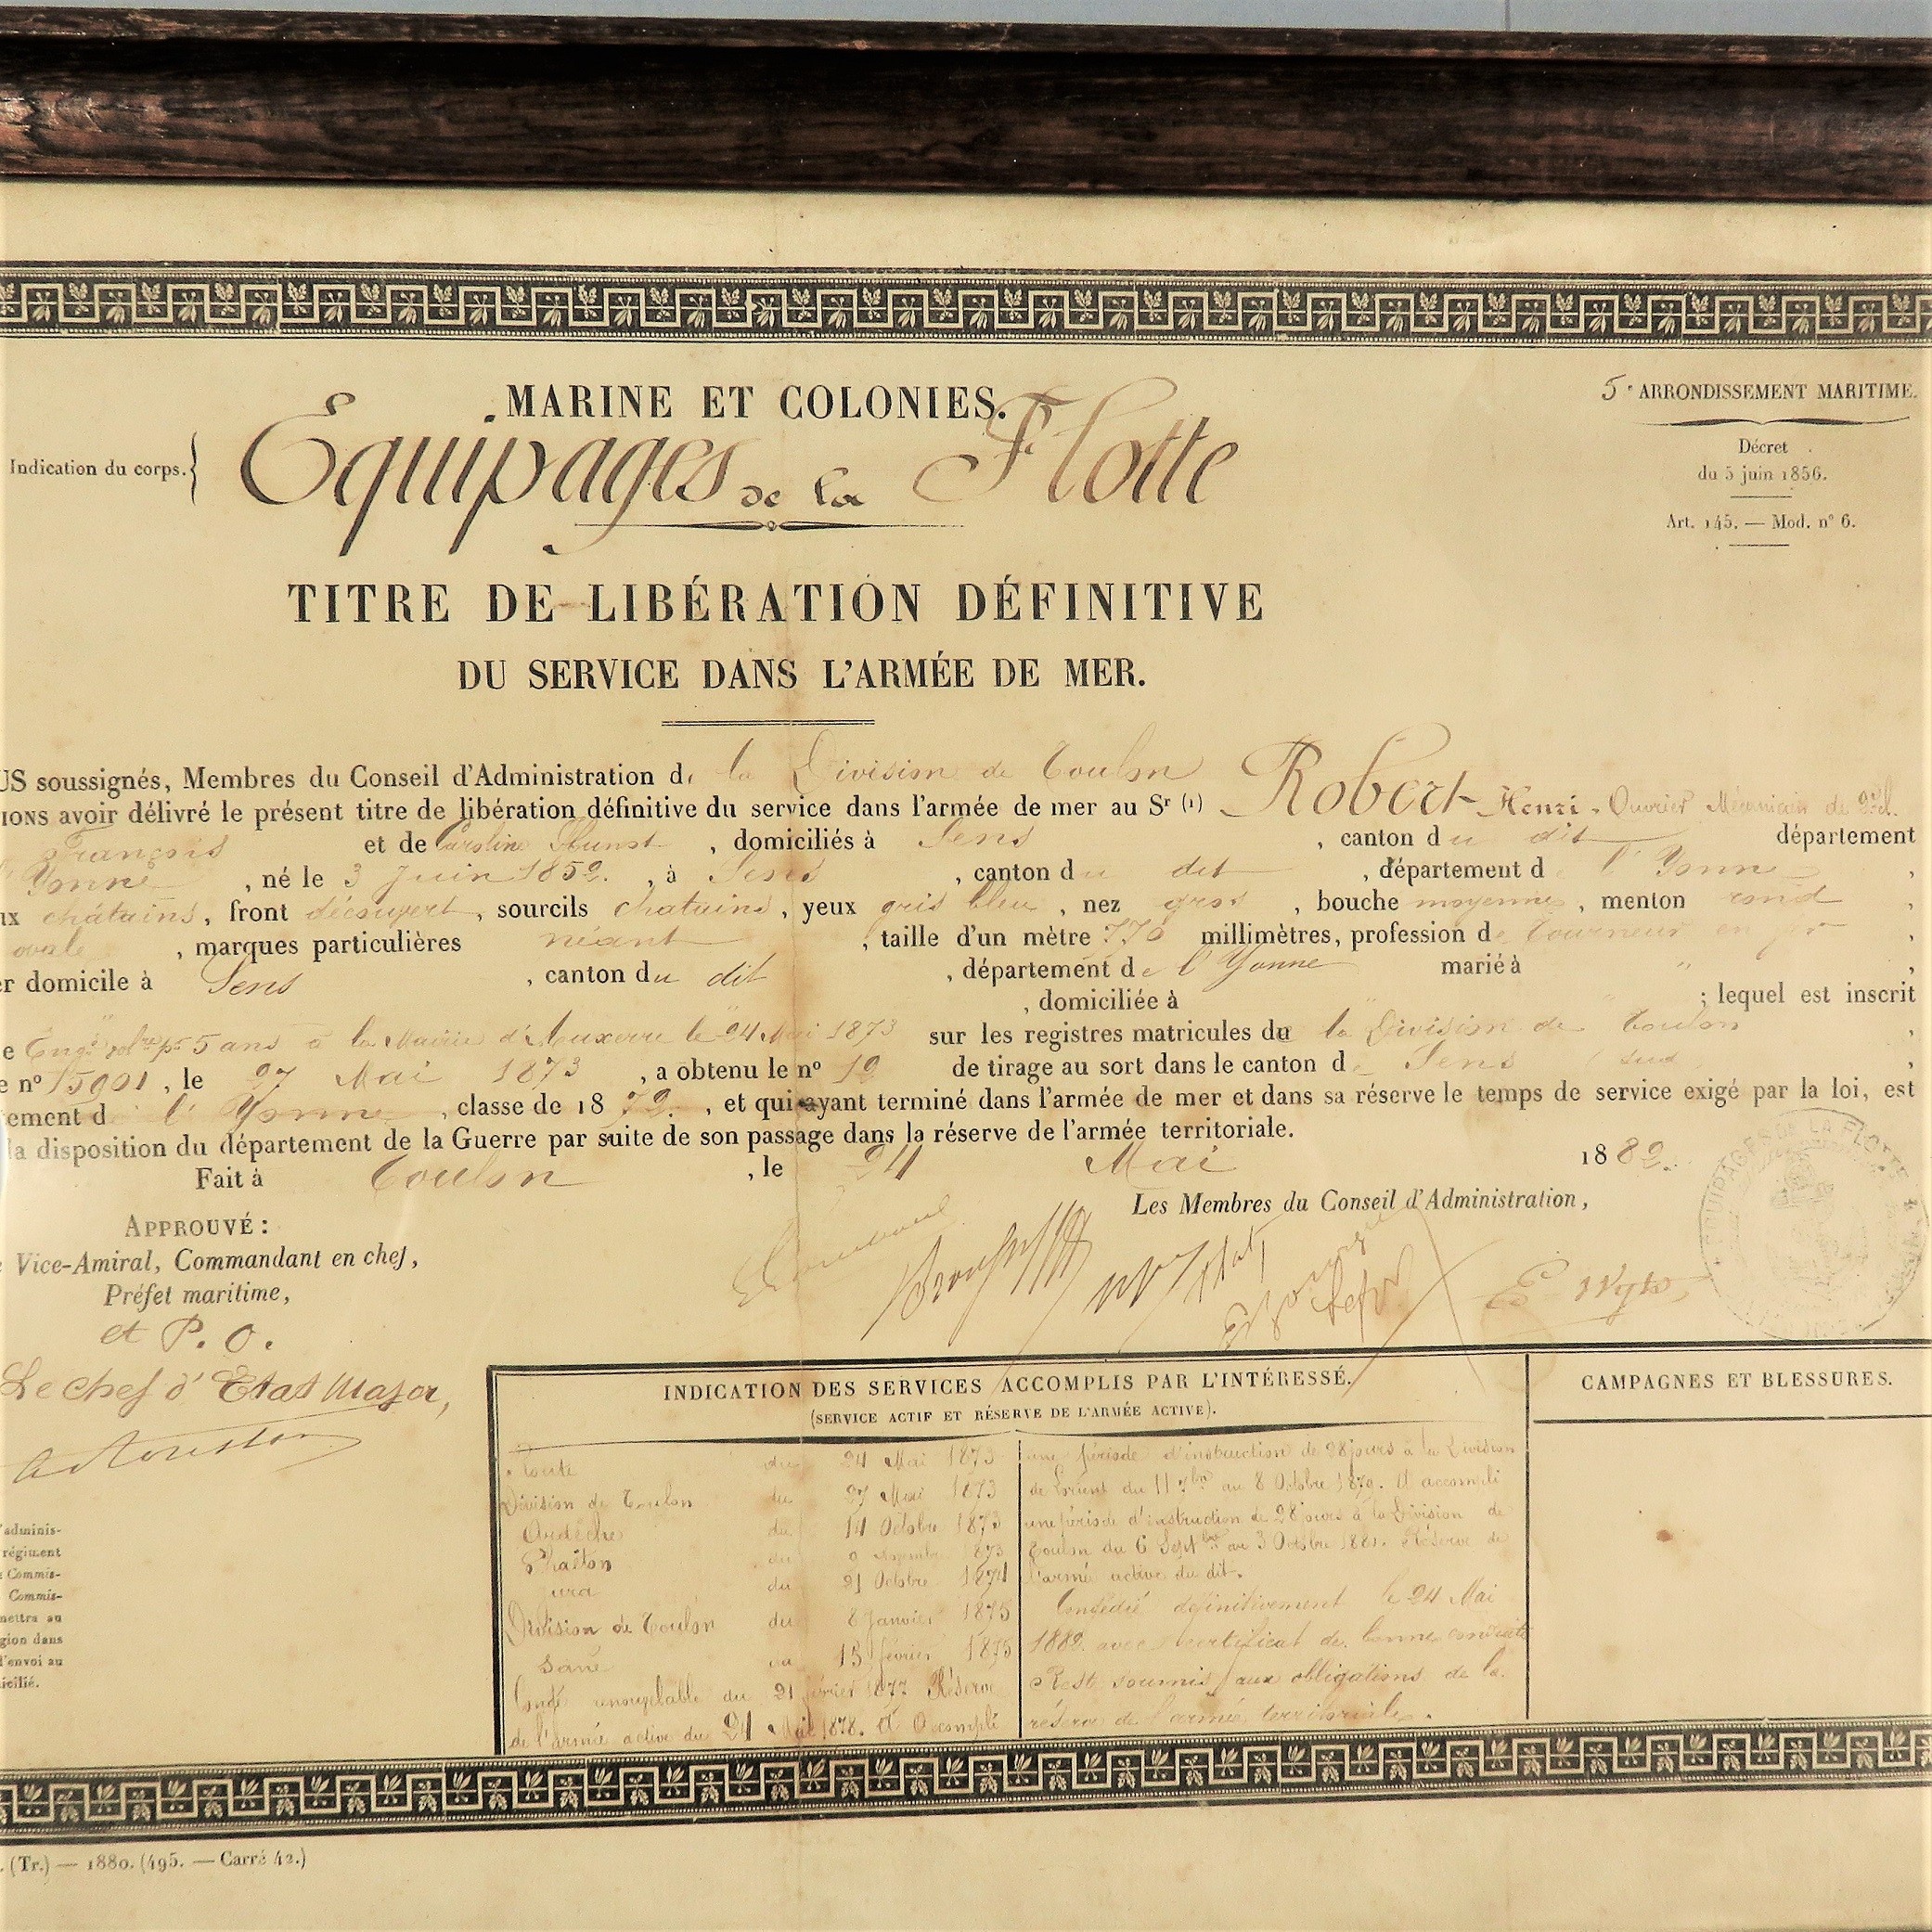 MARINE ET COLONIES.
5e ARRONDISSEMENT MARITIME.
Décret
du 5 juin 1856.
Art. 145. — Mod. n° 6.
Indication du corps.
Equipages de la Flotte
TITRE DE LIBÉRATION DÉFINITIVE
DU SERVICE DANS L'ARMÉE DE MER.
US soussignés, Membres du Conseil d'Administration de la Division de Toulon
IONS avoir délivré le présent titre de libération définitive du service dans l'armée de mer au Sr (1) Robert Henri Ouvrier Mécanicien de
François et de Caroline , domiciliés à Sens , canton du dit département
Yonne , né le 3 Juin 1852. , à Sens , canton du dit , département de l'Yonne ,
ux châtains, front découvert, sourcils chatains, yeux gris bleu, nez gros , bouche moyenne, menton rond ,
ovale , marques particulières néant , taille d'un mètre 770 millimètres, profession de Tourneur en fer ,
er domicile à Sens , canton du dit , département de l'Yonne marié à " ,
" , domiciliée à " ; lequel est inscrit
e Engé volre pr 5 ans à la Mairie d'Auxerre le 24 Mai 1873 sur les registres matricules du la Division de Toulon ,
e n° 15001, le 27 Mai 1873 , a obtenu le n° 19 de tirage au sort dans le canton de Sens sud ,
tement de l'Yonne , classe de 1872. , et qui ayant terminé dans l'armée de mer et dans sa réserve le temps de service exigé par la loi, est
la disposition du département de la Guerre par suite de son passage dans la réserve de l'armée territoriale.
Fait à Toulon , le 24 Mai 1882.
Les Membres du Conseil d'Administration,
APPROUVÉ :
Vice-Amiral, Commandant en chef,
Préfet maritime,
et P. O.
Le chef d'Etat Major,
EQUIPAGES DE LA FLOTTE
INDICATION DES SERVICES ACCOMPLIS PAR L'INTÉRESSÉ.
(SERVICE ACTIF ET RÉSERVE DE L'ARMÉE ACTIVE).
CAMPAGNES ET BLESSURES.
Route du 24 Mai 1873
Division de Toulon du 27 Mai 1873
Ardèche du 14 Octobre 1873
du 9 Novembre 1873
du 21 Octobre 1874
Division de Toulon du 8 Janvier 1875
Sané du 15 février 1875
Congé renouvelable du 21 février 1877 Réserve
de l'armée active du 24 Mai 1878. A accompli
une période d'instruction de 28 jours à la Division
de Lorient du 11 7bre au 8 Octobre 1879. A accompli
une période d'instruction de 28 jours à la Division de
Toulon du 6 Septbre au 3 Octobre 1881. Réserve de
l'armée active du dit.
Congédié définitivement le 24 Mai
1882 avec certificat de bonne conduite
Reste soumis aux obligations de la
réserve de l'armée territoriale.
'adminis-
régiment
Commis-
Commis-
mettra au
gion dans
d'envoi au
icilié.
. (Tr.) — 1880. (495. — Carré 42.)